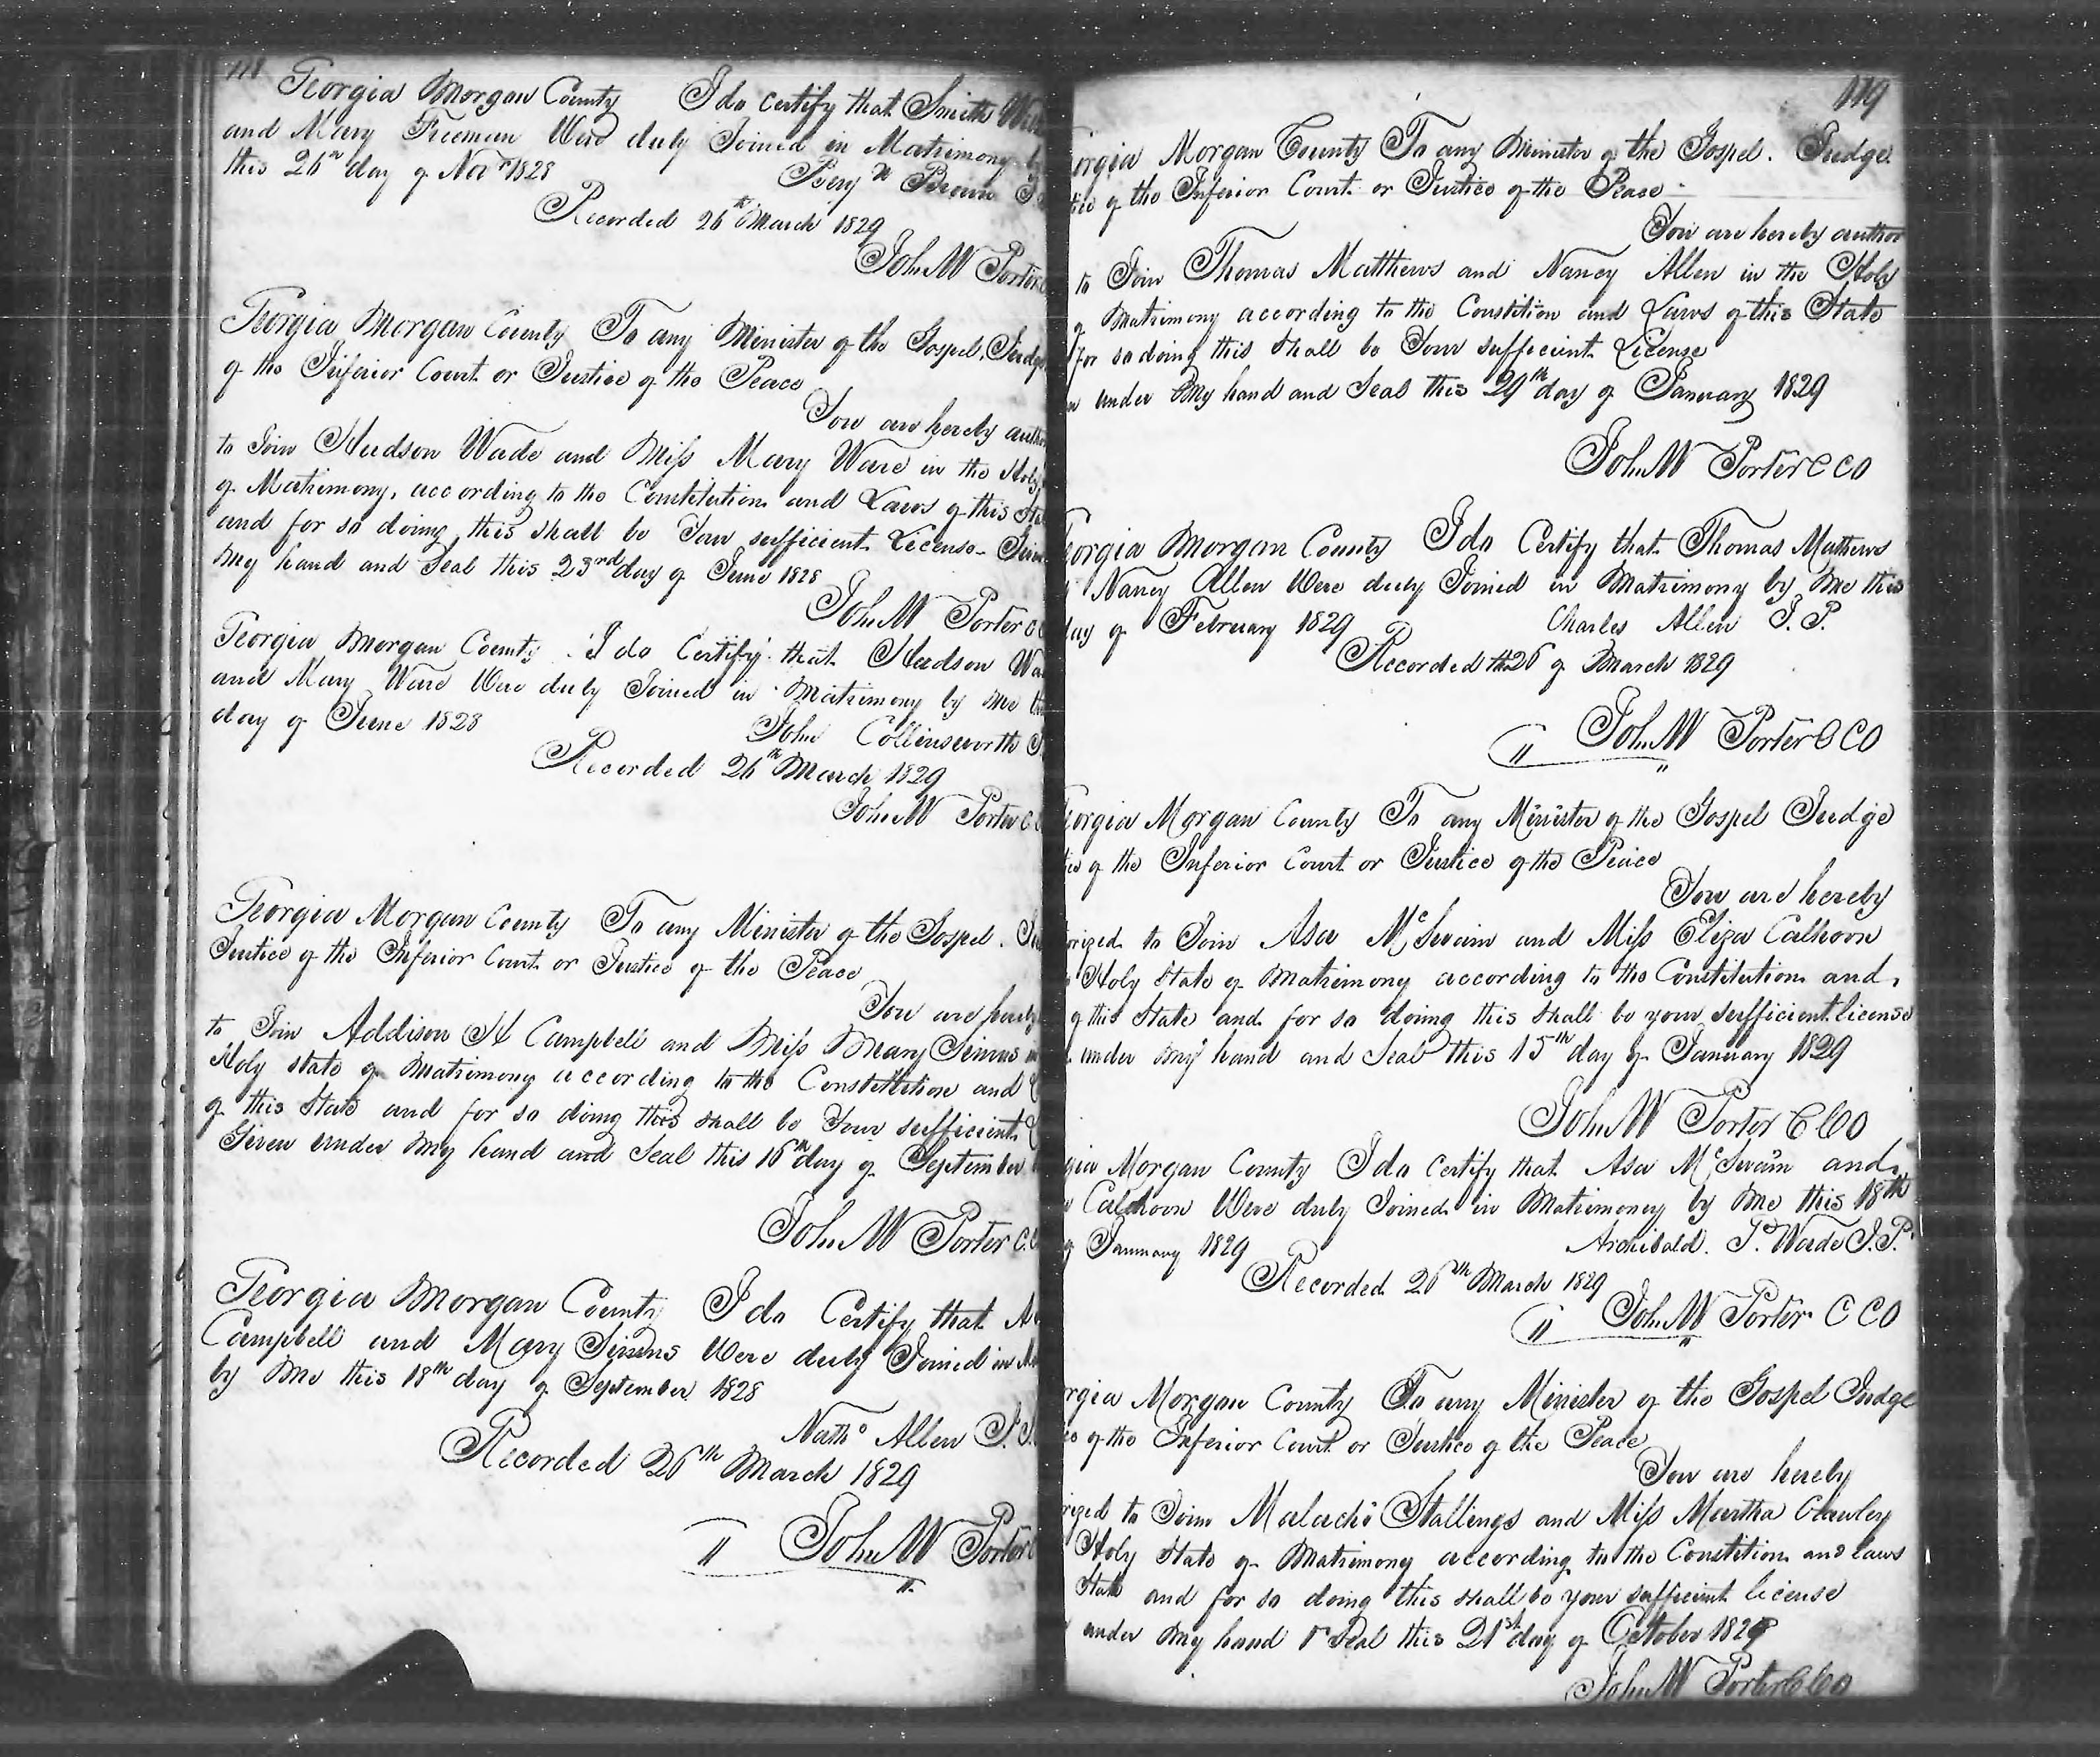 118
Georgia Morgan County I do certify that Smith
and Mary Freeman Were duly Joined in Matrimony by
this 26th day of Novr 1828
Benjn Brown
Recorded 26th March 1829
John W Porter
Georgia Morgan County To any Minister of the Gospel, Judge
of the Inferior Court or Justice of the Peace
You are hereby autho
to Join Hudson Wade and Miss Mary Ware in the Holy
of Matrimony, according to the Constitution and Laws of this Sta
and for so doing this shall be Your sufficient License Given
My hand and Seal this 23rd day of June 1828
John W Porter C C
Georgia Morgan County I do Certify that Hudson Wa
and Mary Ware Were duly Joined in Matrimony by Me th
day of June 1828
John Collinsworth
Recorded 26th March 1829
John W Porter C C
Georgia Morgan County To any Minister of the Gospel. Ju
Justice of the Inferior Court or Justice of the Peace
You are hereby
to Join Addison H Campbell and Miss Mary Simms in
Holy state of Matrimony according to the Constitution and L
of this State and for so doing this shall be Your sufficient L
Given under My hand and Seal this 16th day of September
John W Porter C.C
Georgia Morgan County I do Certify that A
Campbell and Mary Simms Were duly Joined in Ma
by Me this 18th day of September 1828
Nathl Allen J.P.
Recorded 26th March 1829
John W Porter
119
orgia Morgan County To any Minister of the Gospel. Judge
tice of the Inferior Court or Justice of the Peace
You are hereby author
to Join Thomas Matthews and Nancy Allen in the Holy
of Matrimony according to the Constition and Laws of this State
for so doing this shall be Your sufficient License
under My hand and Seal this 29th day of January 1829
John W Porter C C O
eorgia Morgan County I do Certify that Thomas Mathews
Nancy Allen Were duly Joined in Matrimony by Me this
day of February 1829
Charles Allen J. P.
Recorded th 26 of March 1829
John W Porter C C O
eorgia Morgan County To any Minister of the Gospel Judge
tice of the Inferior Court or Justice of the Peace
You are hereby
orized to Join Asa McSwain and Miss Eliza Calhoon
Holy State of Matrimony according to the Constitution and
of this State and for so doing this shall be your sufficient license
under my hand and Seal this 15th day of January 1829
John W Porter C C O
gia Morgan County I do Certify that Asa McSwain and
Calhoon Were duly Joined in Matrimony by Me this 18th
of January 1829
Archibald. T. Wade J. P.
Recorded 26th March 1829
John W Porter C C O
rgia Morgan County To any Minister of the Gospel Judge
ce of the Inferior Court or Justice of the Peace
You are hereby
rized to Join Malachi Stallings and Miss Martha Crawley
Holy State of Matrimony according to the Constition and laws
State and for so doing this shall be your sufficient license
under My hand & Seal this 21st day of October 1828
John W Porter C C O